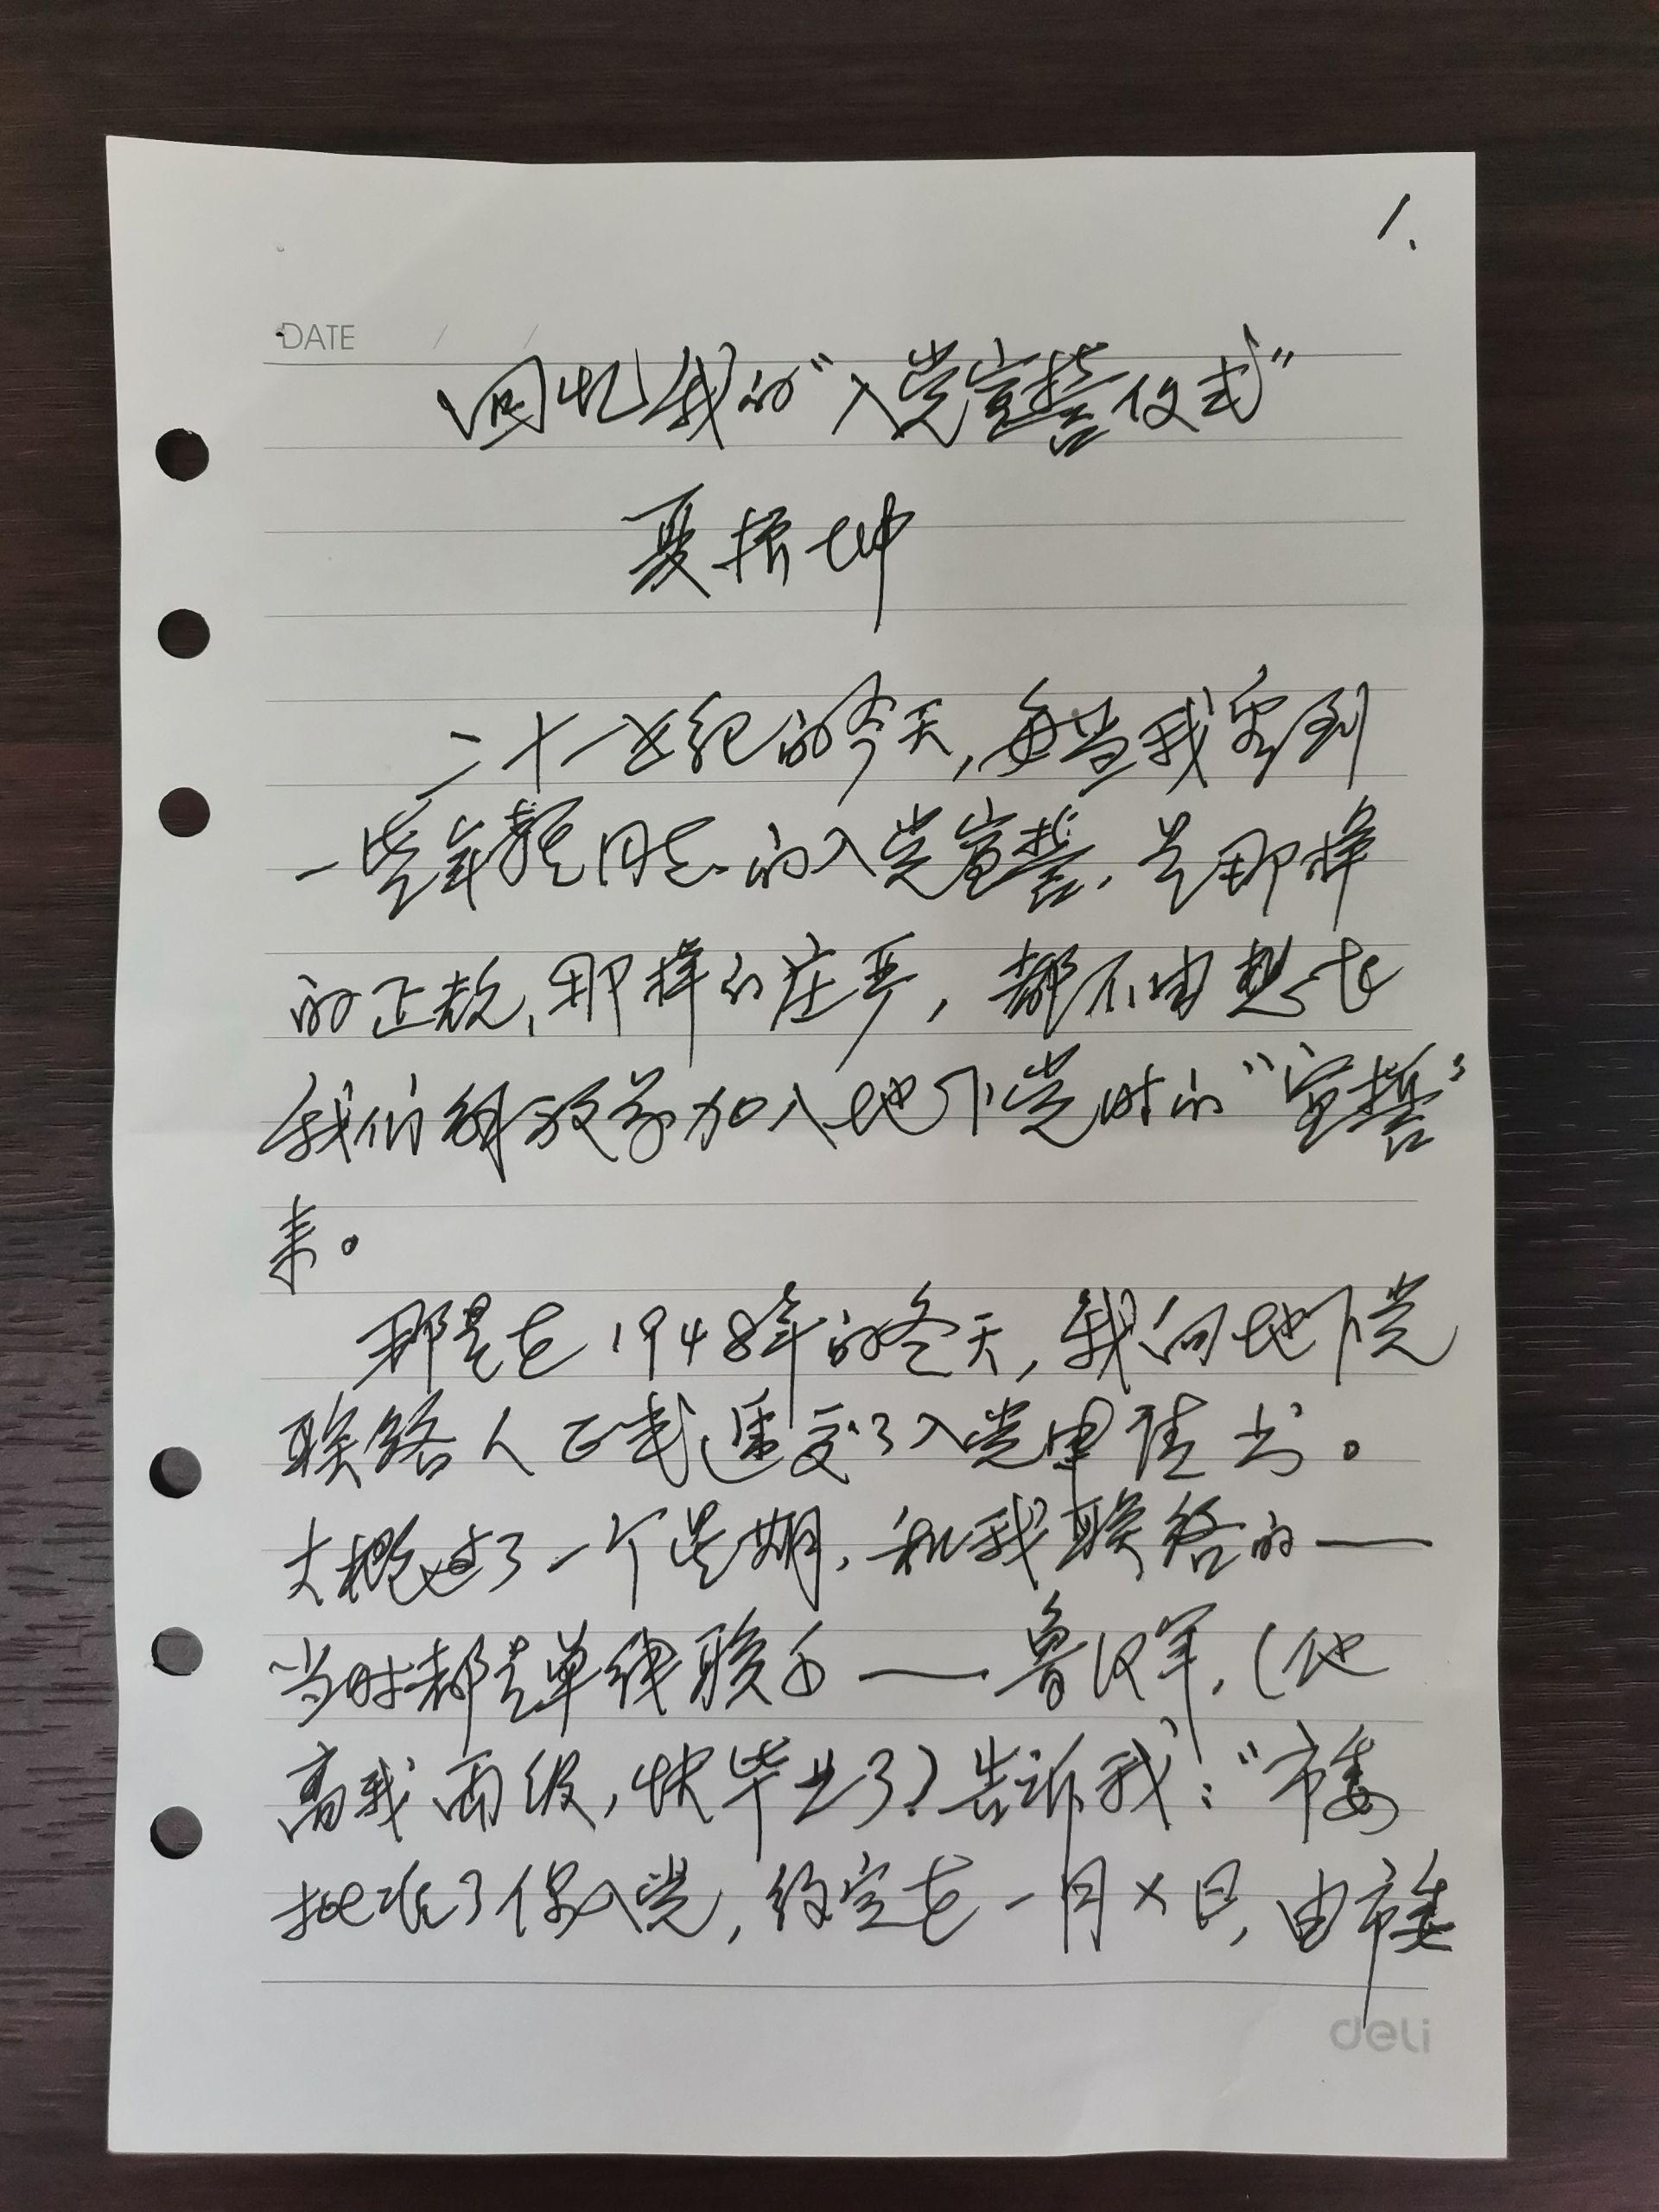 1.
DATE / /
回忆我的“入党宣誓仪式”
夏振坤
二十一世纪的今天,每当我看到
一些年轻同志的入党宣誓,是那样
的正规,那样的庄严,都不由想起
我们解放前加入地下党时的“宣誓”
来。
那是在1948年的冬天,我向地下党
联络人正式递交了入党申请书。
大概过了一个星期,和我联络的——
当时都是单线联系——鲁汉军,(他
高我两级,快毕业了)告诉我:“市委
批准了你入党,约定在一月×日,由市委
deli